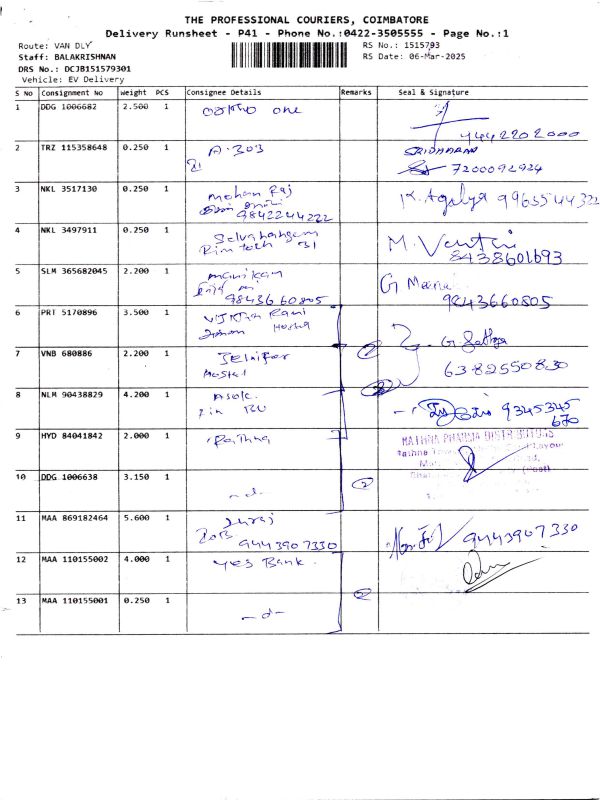 THE PROFESSIONAL COURIERS, COIMBATORE
Delivery Runsheet - P41 - Phone No.:0422-3505555 - Page No.:1
Route: VAN DLY
Staff: BALAKRISHNAN
DRS No.: DCJB151579301
Vehicle: EV Delivery
RS No.: 1515793
RS Date: 06-Mar-2025
S No Consignment No Weight PCS Consignee Details Remarks Seal & Signature
1 DDG 1006682 2.500 1 ortho one
4442202000
2 TRZ 115358648 0.250 1 A.303 SRIDHARAN
7200092924
3 NKL 3517130 0.250 1 Mohan Raj K. Agalya 9965544322
9842244222
4 NKL 3497911 0.250 1 Selvahangam M.
31 8438601693
5 SLM 365682045 2.200 1 manikam G
9843660805 9843660805
6 PRT 5170896 3.500 1 Rani
G. Sathya
7 VNB 680886 2.200 1 Jelnifer 6382550830
2
8 NLM 90438829 4.200 1 Asok 9345345
670
9 HYD 84041842 2.000 1 Rathna RATHNA PHARMA DISTRIBUTORS
10 DDG 1006638 3.150 1 -d- 2
11 MAA 869182464 5.600 1
9443907330 9443907330
12 MAA 110155002 4.000 1 Yes Bank.
2
13 MAA 110155001 0.250 1 -d-